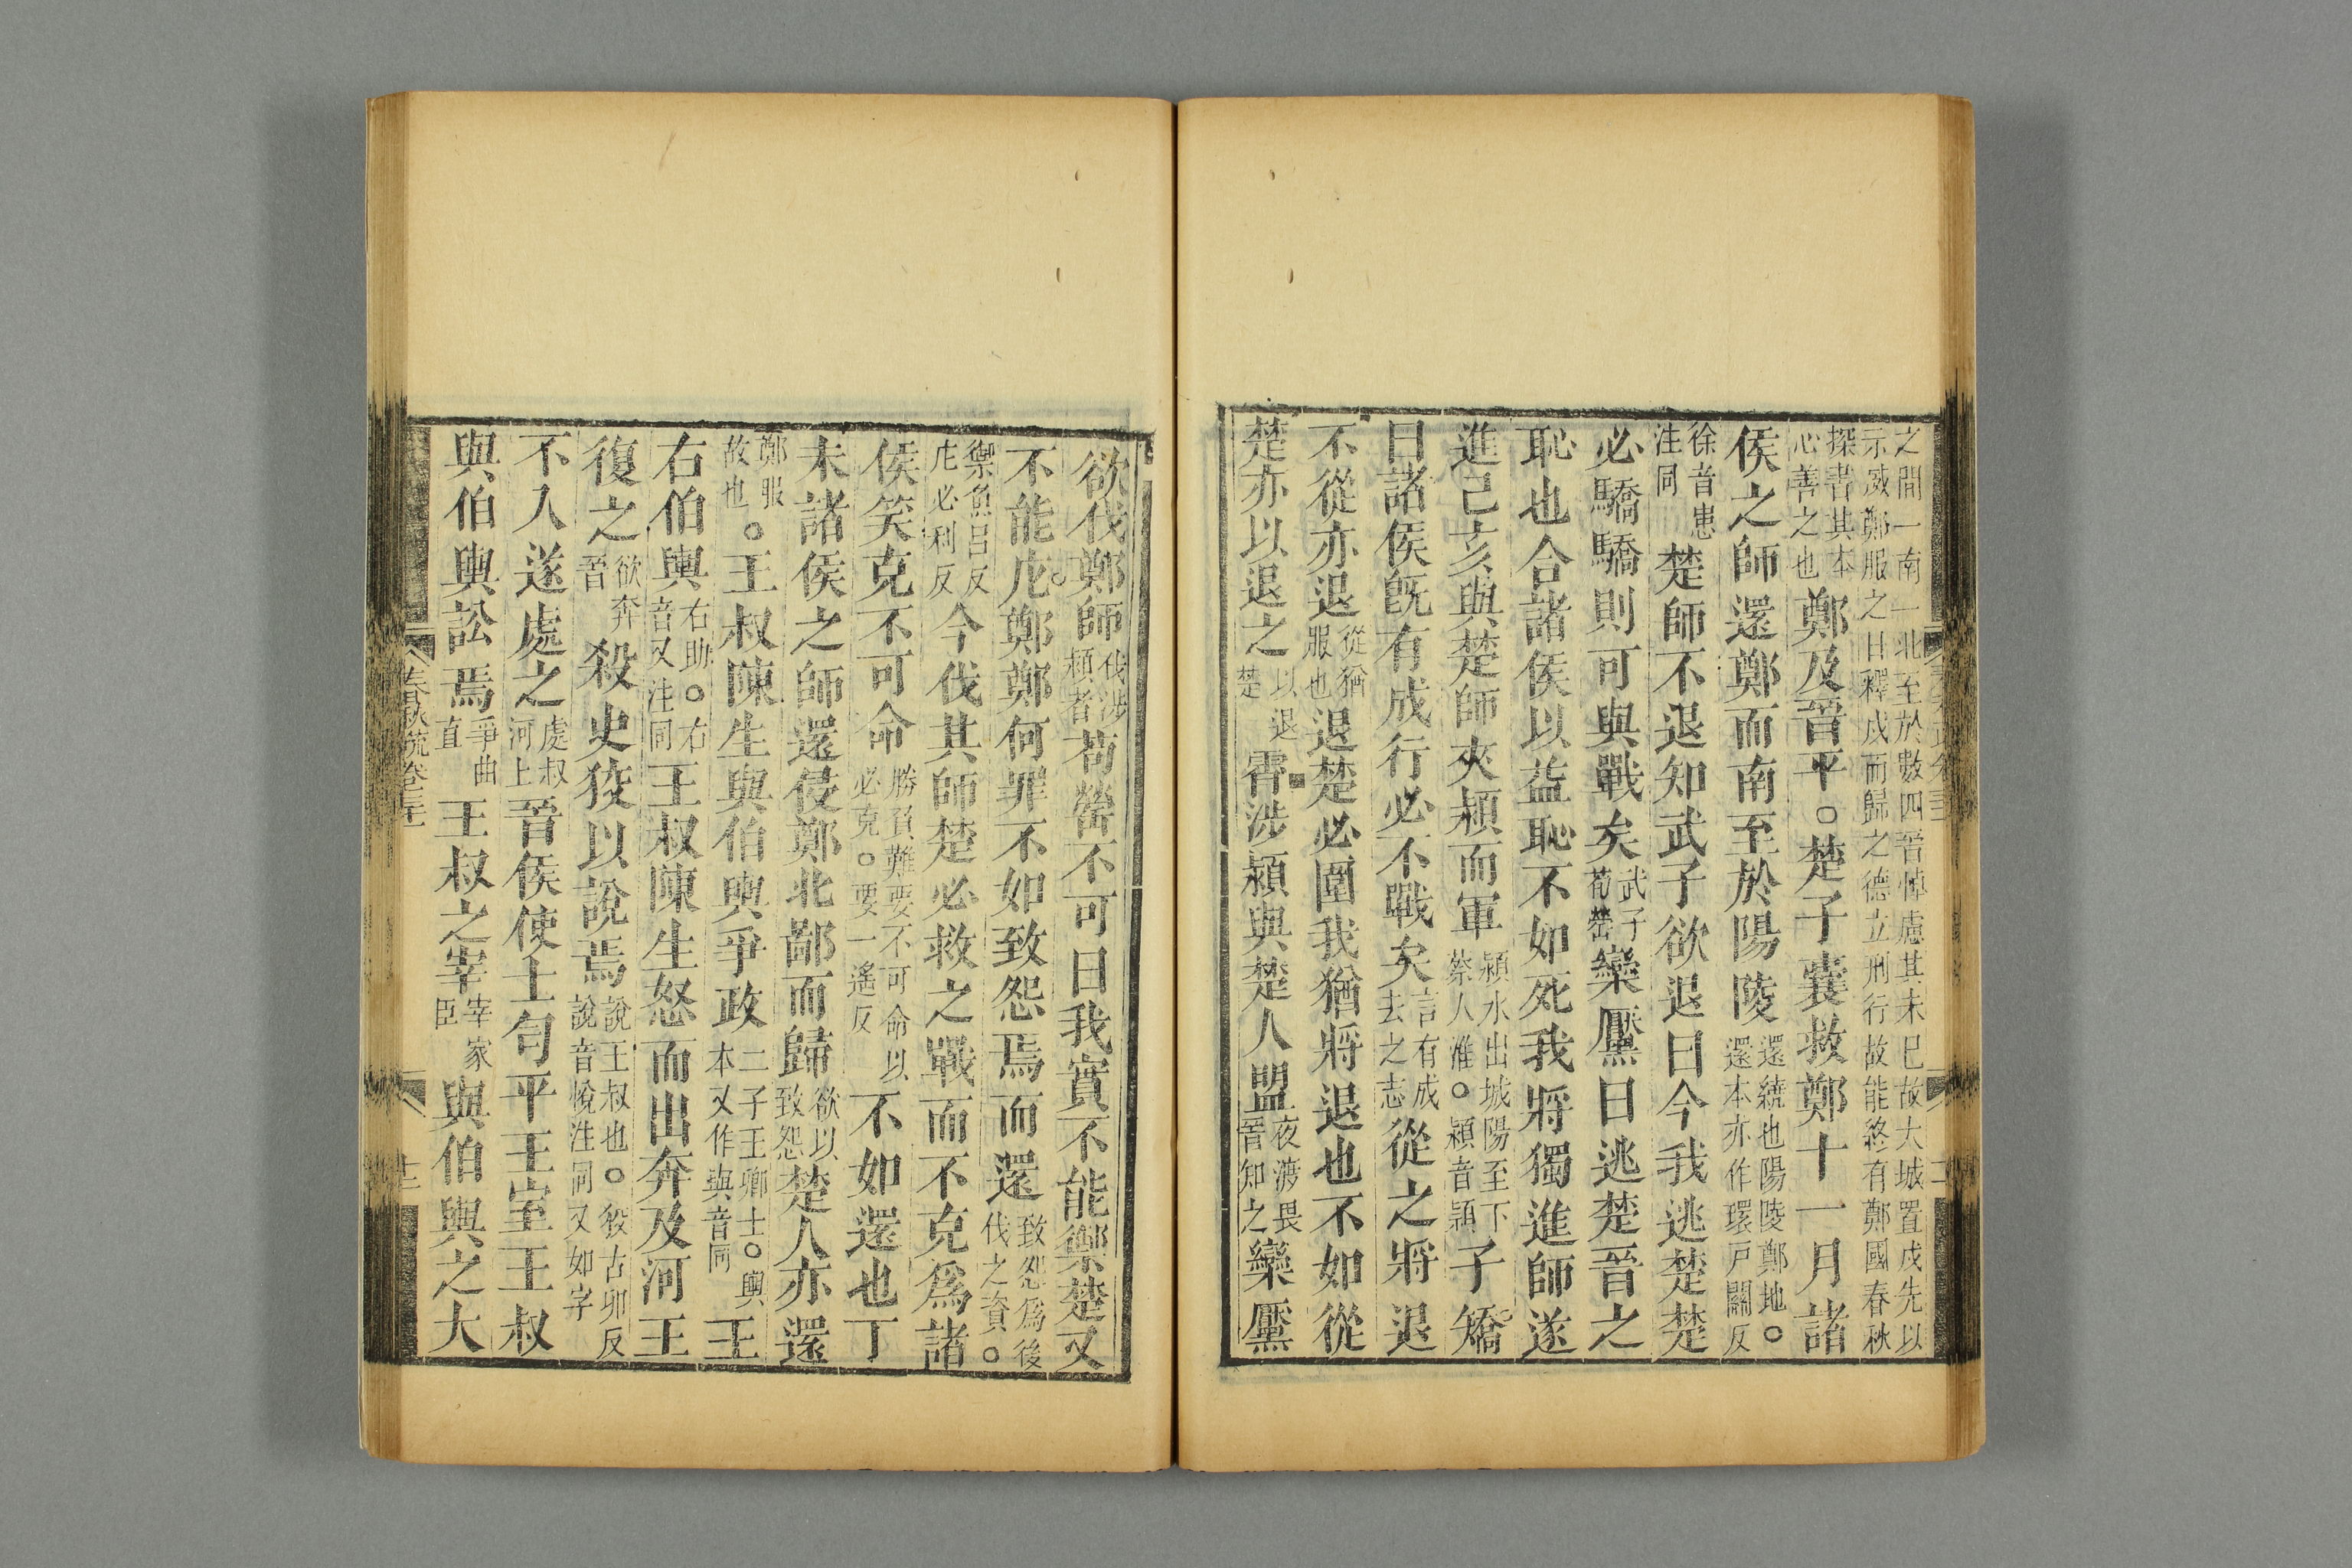 之閒一南一北至於數四晉悼慮其未已故大城置戍先以
示威鄭服之日釋戍而歸之德立刑行故能終有鄭國春秋
探書其本
心善之也
鄭及晉平○楚子囊救鄭十一月諸
侯之師還鄭而南至於陽陵
還繞也陽陵鄭地○
還本亦作環戸關反
徐音患
注同
楚師不退知武子欲退曰今我逃楚楚
必驕驕則可與戰矣
武子
荀罃
欒黶曰逃楚晉之
恥也合諸侯以益恥不如死我將獨進師遂
進己亥與楚師夾潁而軍
潁水出城陽至下
蔡人淮○潁音穎
子矯
曰諸侯旣有成行必不戰矣
言有成
去之志
從之將退
不從亦退
從猶
服也
退楚必圍我猶將退也不如從
楚亦以退之
以退
楚
霄涉潁與楚人盟
夜渡畏
晉知之
欒黶
欲伐鄭師
伐涉
潁者
荀罃不可曰我實不能禦楚又
不能庇鄭鄭何罪不如致怨焉而還
致怨爲後
伐之資○
禦魚呂反
庇必利反
今伐其師楚必救之戰而不克爲諸
侯笑克不可命
勝負難要不可命以
必克○要一遙反
不如還也丁
未諸侯之師還侵鄭北鄙而歸
欲以
致怨
楚人亦還
鄭服
故也
○王叔陳生與伯輿爭政
二子王卿士○輿
本又作與音同
王
右伯輿
右助○右
音又注同
王叔陳生怒而出奔及河王
復之
欲奔
晉
殺史狡以說焉
說王叔也○狡古卯反
說音悅注同又如字
不入遂處之
處叔
河上
晉侯使士匄平王室王叔
與伯輿訟焉
爭曲
直
王叔之宰
宰家
臣
與伯輿之大
春秋疏卷三十一
十二